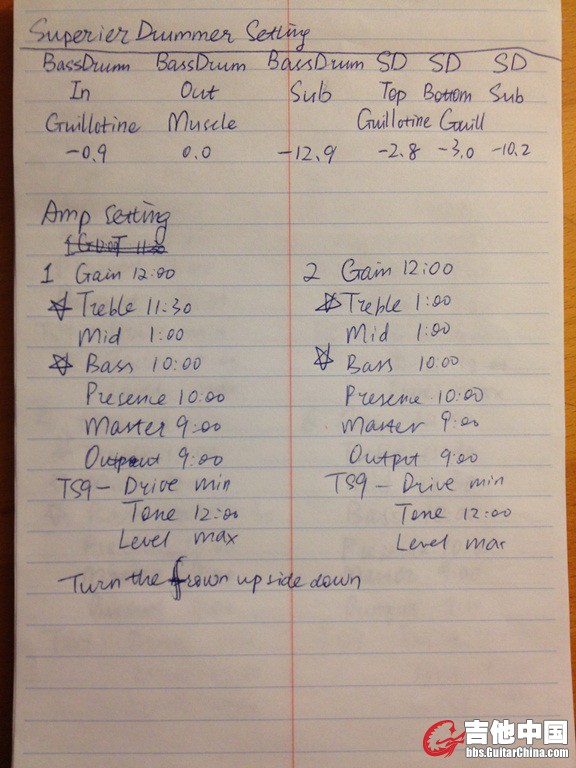 Superier Drummer Setting
BassDrum BassDrum BassDrum SD SD SD
In Out Sub Top Bottom Sub
Guillotine Muscle Guillotine Guill
-0.9 0.0 -12.9 -2.8 -3.0 -10.2
Amp Setting
1 Gain 12:00 2 Gain 12:00
Treble 11:30 Treble 1:00
Mid 1:00 Mid 1:00
Bass 10:00 Bass 10:00
Presence 10:00 Presence 10:00
Master 9:00 Master 9:00
Output 9:00 Output 9:00
TS9 - Drive min TS9 - Drive min
Tone 12:00 Tone 12:00
Level max Level max
Turn the frown up side down
吉他中国
bbs.GuitarChina.com